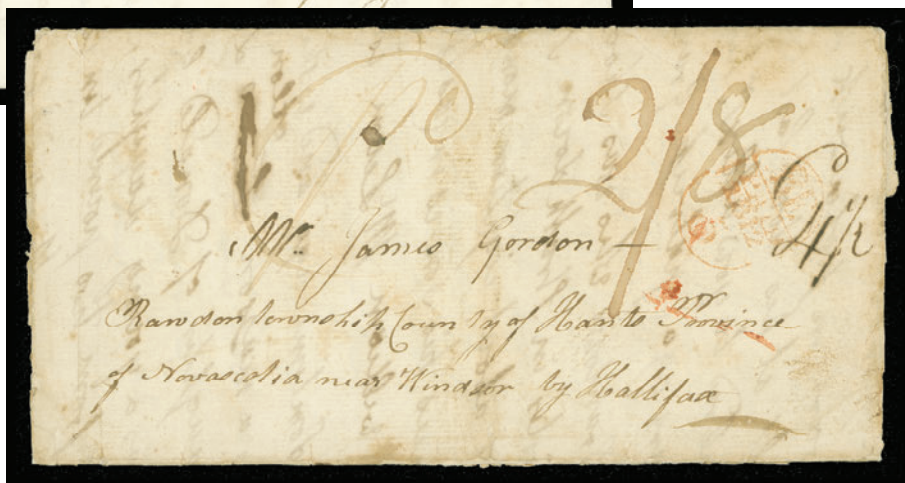 2/8
4½
Mr. James Gordon
Rawdon township County of Hants Province
of Novascotia near Windsor by Hallifax